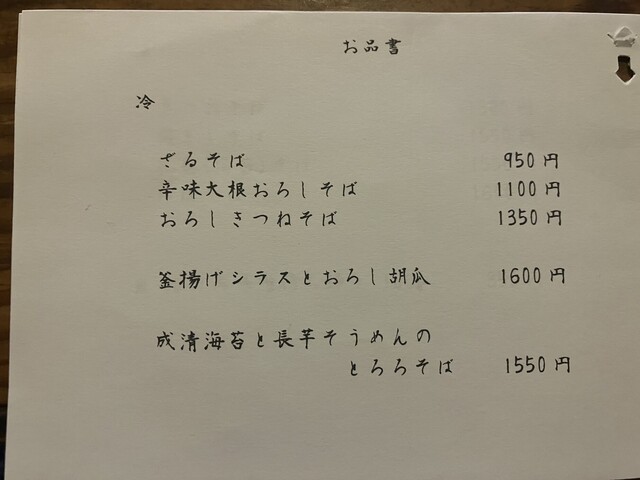 お品書
冷
ざるそば 950円
辛味大根おろしそば 1100円
おろしきつねそば 1350円
釜揚げシラスとおろし胡瓜 1600円
成清海苔と長芋そうめんの
とろろそば 1550円